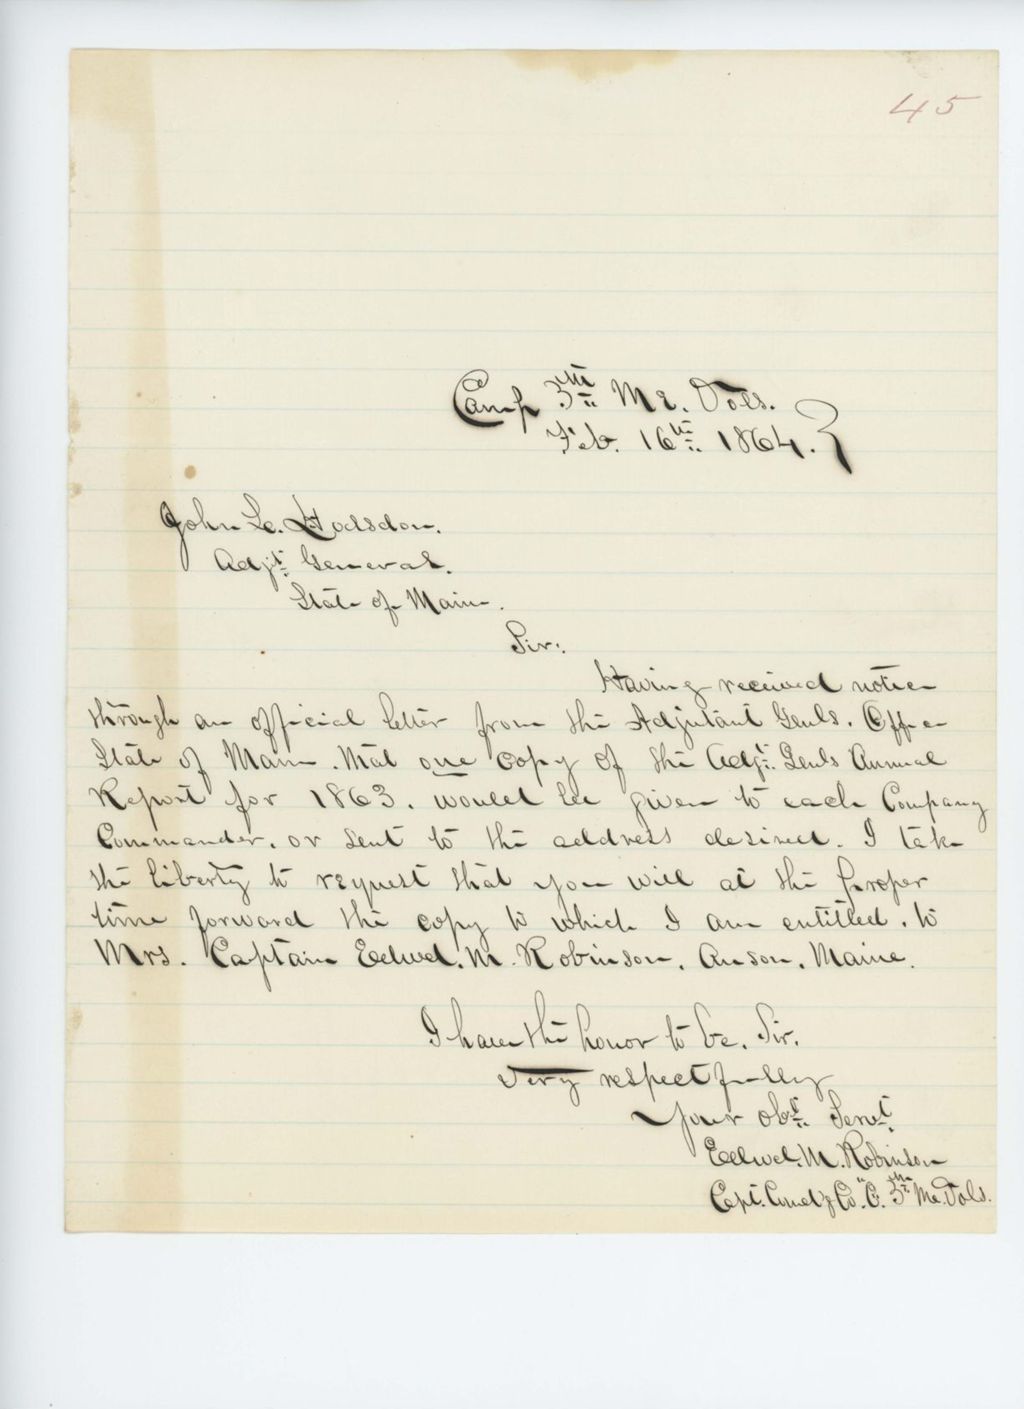 45
Camp 3rd Me. Vols.
Feb. 16th 1864.
John L. Hodsdon.
Adjt. General.
State of Maine.
Sir:
Having received notice
through an official letter from the Adjutant Genls. Office
State of Maine. that one copy of the Adjt. Genls Annual
Report for 1863. would be given to each Company
Commander. or sent to the address desired. I take
the liberty to request that you will at the proper
time forward the copy to which I am entitled. to
Mrs. Captain Edwd. M. Robinson. Anson. Maine.
I have the honor to be. Sir.
Very respectfully
Your obt. Servt.
Edwd. M. Robinson
Capt. Comdg Co. "C". 3rd Me. Vols.